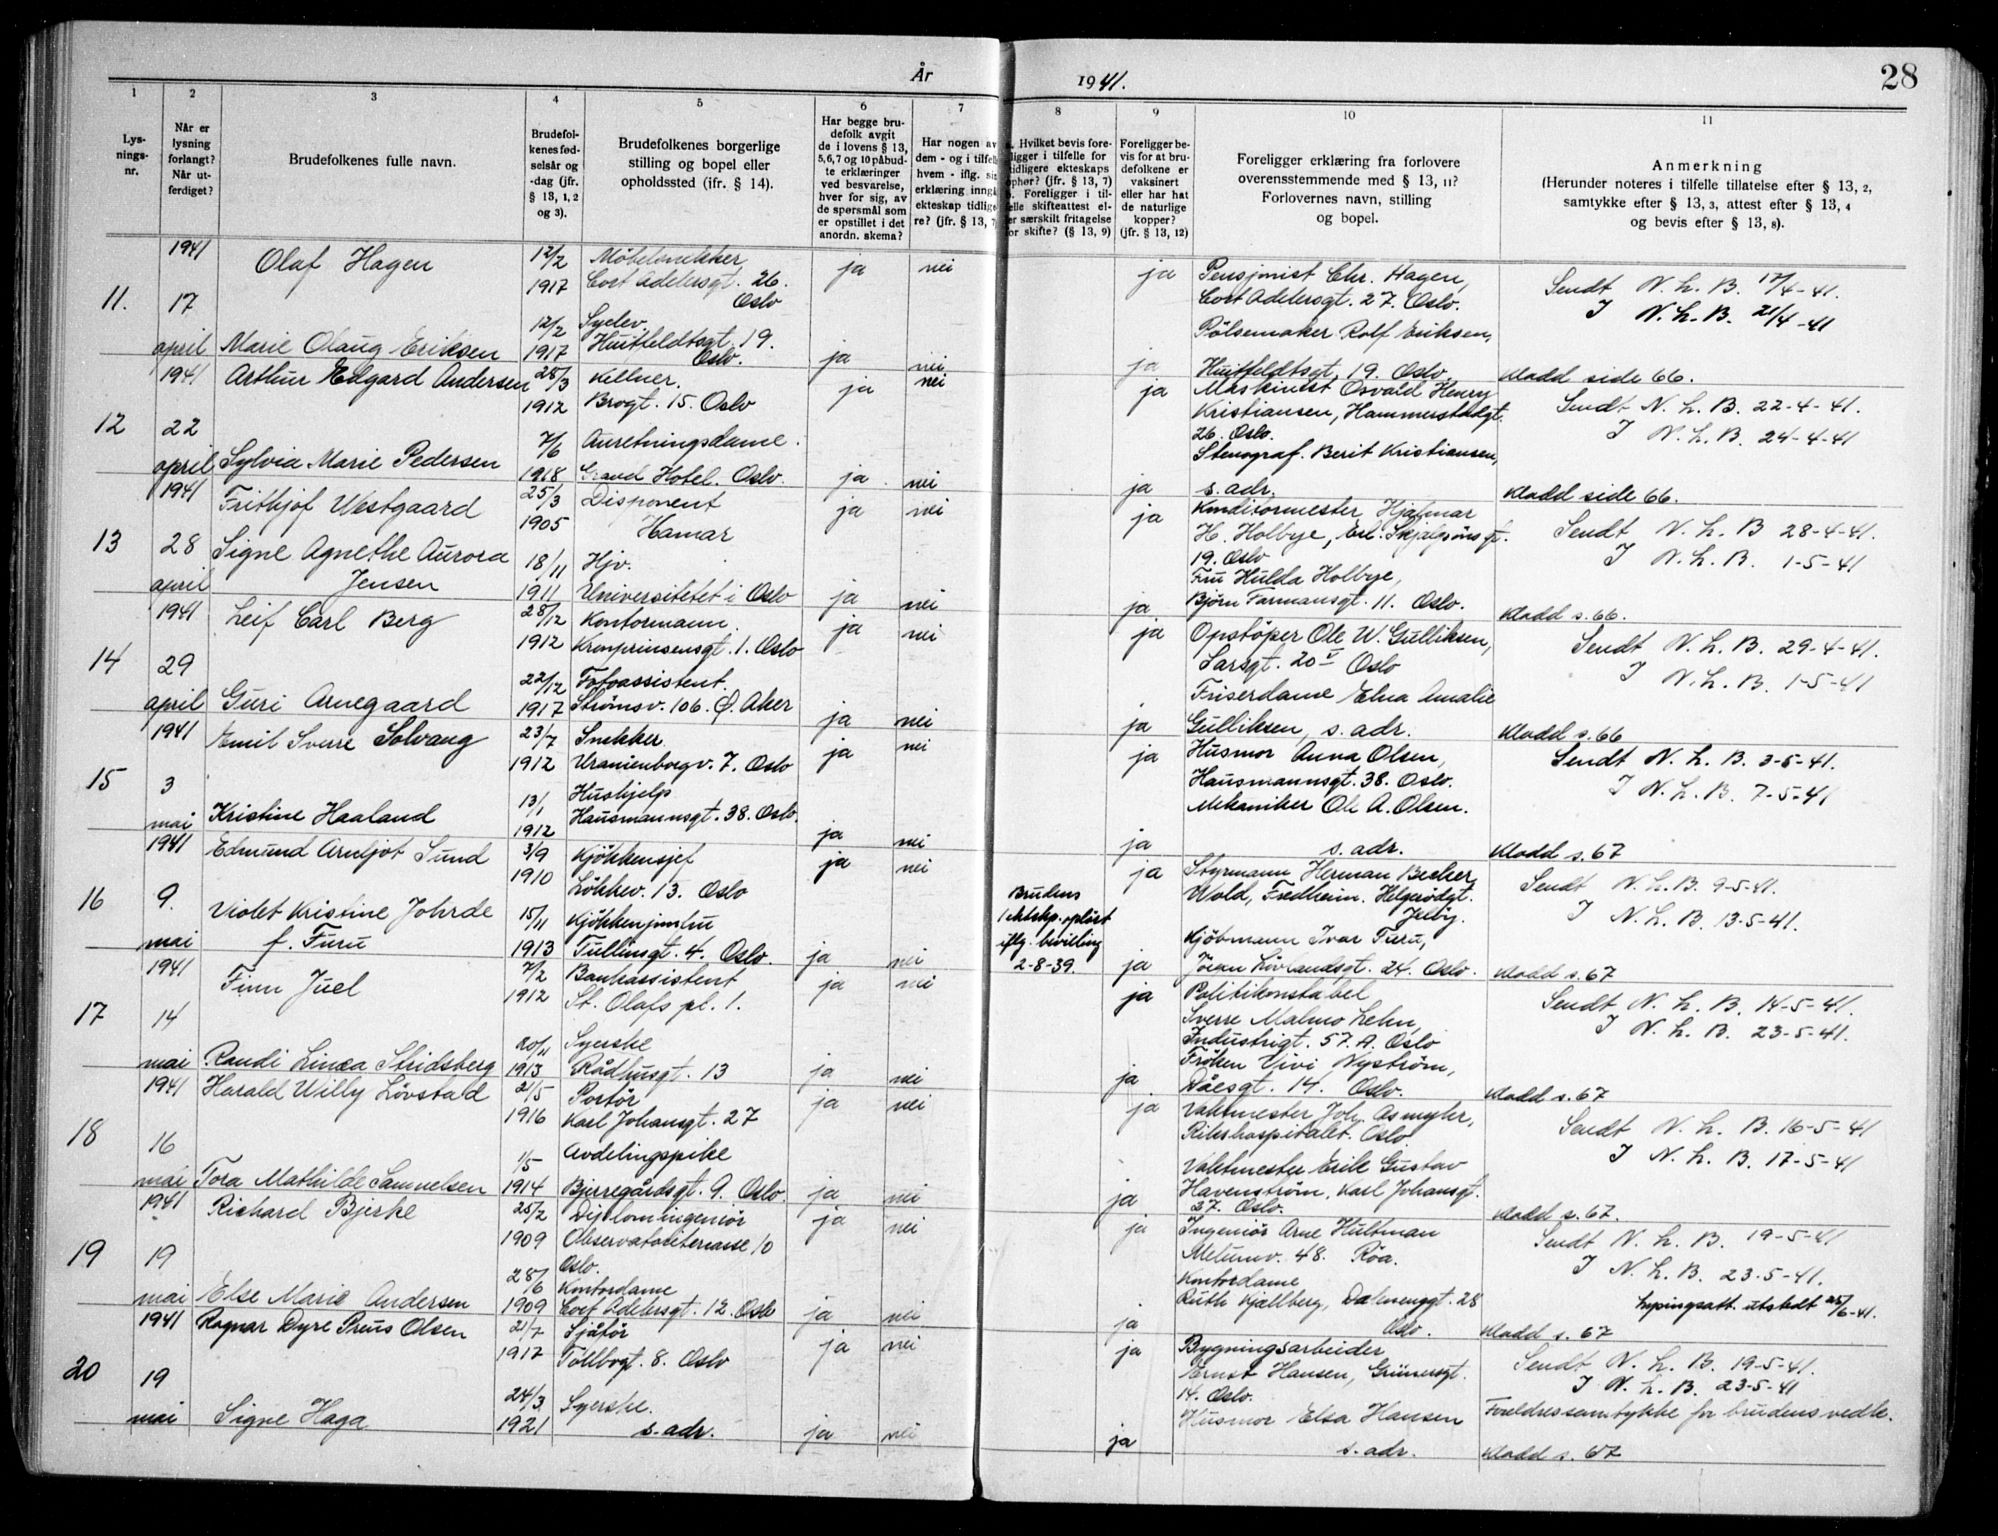 År
1941.
28
1
2
3
4
5
6
7
8
9
10
11
Lys-
nings-
nr.
Når er
lysning
forlangt?
Når ut-
ferdiget?
Brudefolkenes fulle navn.
Brudefol-
kenes fød-
selsår og
-dag (jfr.
§ 13, 1, 2
og 3).
Brudefolkenes borgerlige
stilling og bopel eller
opholdssted (ifr. § 14).
Har begge bru-
defolk avgit
de i lovens § 13,
5,6,7 og 10 påbud-
te erklæringer
ved besvarelse,
hver for sig, av
de spørsmål som
er opstillet i det
anordn. skema?
Har nogen av
dem - og i tilfelle
hvem - iflg. si
erklæring inngå
ekteskap tidlige
re? (jfr. § 13, 7
Hvilket bevis fore-
ligger i tilfelle for
tidligere ekteskaps
ophør? (jfr. § 13, 7)
Foreligger i til-
felle skifteattest el-
er særskilt fritagelse
for skifte? (§ 13, 9)
Foreligger be-
vis for at bru-
defolkene er
vaksinert
eller har hat
de naturlige
kopper?
(jfr. § 13, 12)
Foreligger erklæring fra forlovere
overensstemmende med § 13, 11?
Forlovernes navn, stilling
og bopel.
Anmerkning
(Herunder noteres i tilfelle tillatelse efter § 13, 2,
samtykke efter § 13, 3, attest efter § 13, 4
og bevis efter § 13, 8).
11.
1941
17
april
Olaf Hagen
12/2
1917
Møbelsnekker
Cort Adelersgt. 26.
Oslo
ja
nei
ja
Pensjonist Chr. Hagen,
Cort Adelersgt. 27. Oslo.
Sendt N. L. B. 17/4-41.
I N. L. B. 21/4-41
Marie Olaug Eriksen
12/2
1917
Syelev.
Huitfeldtsgt. 19.
Oslo.
ja
nei
ja
Pølsemaker Rolf Eriksen,
Huitfeldtsgt. 19. Oslo.
Kladd side 66.
12
1941
22
april
Arthur Edgard Andersen
28/3
1912
Kellner.
Brogt. 15. Oslo
ja
nei
ja
Maskinist Osvald Henry
Kristiansen, Hammerstadgt.
26. Oslo.
Sendt N. L. B. 22-4-41.
I N. L. B. 24-4-41
Sylvia Marie Pedersen
7/6
1918
Anretningsdame.
Grand Hotel. Oslo.
ja
nei
ja
Stenograf. Berit Kristiansen,
s. adr.
Kladd side 66.
13
1941
28
april
Frithjof Westgaard
25/3
1905
Disponent
Hamar
ja
nei
ja
Konditormester Hjalmar
H. Holbye, Erl. Skjalgsøns gt.
19. Oslo
Sendt N. L. B 28-4-41.
I N. L. B. 1-5-41
Signe Agnethe Aurora
Jensen
18/11
1911
Hjv.
Universitetet i Oslo
ja
nei
ja
Fru Hulda Holbye,
Bjørn Farmansgt. 11. Oslo.
Kladd s. 66.
14
1941
29
april
Leif Carl Berg
28/12
1912
Kontormann.
Kronprinsensgt. 1. Oslo
ja
nei
ja
Opstøper Ole W. Gulliksen,
Sarsgt. 20 V Oslo
Sendt N. L. B. 29-4-41.
I N. L. B. 1-5-41
Guri Arnegaard
22/12
1917
Fotoassistent.
Strømsv. 106. Ø. Aker
ja
nei
ja
Friserdame Elna Amalie
Gulliksen, s. adr.
Kladd s. 66
15
1941
3
mai
Emil Sverre Solvang
23/7
1912
Snekker.
Uranienborgv. 7. Oslo
ja
nei
ja
Husmor Anna Olsen,
Hausmannsgt. 38. Oslo.
Sendt N. L. B. 3-5-41.
I N. L. B. 7-5-41
Kristine Haaland
13/1
1912
Hushjelp
Hausmannsgt. 38. Oslo.
ja
nei
ja
Mekaniker Ole A. Olsen.
s. adr.
Kladd s. 67
16
1941
9.
mai
Edmund Arnljot Sund
3/9
1910
Kjøkkensjef
Løkkev. 13. Oslo
ja
nei
ja
Styrmann Herman Becker
Wold, Fredheim. Helgerødgt.
Jeløy.
Sendt N. L. B. 9-5-41.
I N. L. B. 13-5-41.
Violet Kristine Johrde
f. Furu
15/11
1913
Kjøkkenjomfru
Tullinsgt. 4. Oslo.
ja
nei
Brudens
ektskp. opløst
iflg. bevilling
2-8-39.
ja
Kjøbmann Ivar Furu,
Jørgen Løvlandsgt. 24. Oslo.
Kladd s. 67
17
1941
14
mai
Finn Juel
7/2
1912
Bankassistent
St. Olafs pl. 1.
ja
nei
ja
Politikonstabel
Sverre Malmo Lehn,
Industrigt. 57. A. Oslo
Sendt N. L. B. 14-5-41.
I N. L. B. 23-5-41.
Randi Linea Stridsberg
20/11
1913
Syerske
Rådhusgt. 13
ja
nei
ja
Frøken Vivi Nystrøm,
Dåesgt. 14. Oslo.
Kladd s. 67
18
1941
16
mai
Harald Willy Løvstad
21/5
1916
Portør
Karl Johansgt. 27
ja
nei
ja
Vaktmester Joh. Asmyhr,
Rikshospitalet. Oslo
Sendt N. L. B. 16-5-41
I N. L. B. 17-5-41
Tora Mathilde Samuelsen
1/5
1914
Avdelingspike
Bjerregårdsgt. 9. Oslo.
ja
nei
ja
Vaktmester Erik Gustav
Havenstrøm, Karl Johansgt.
27. Oslo.
Kladd s. 67.
19
1941
19
mai
Richard Bjerke
25/2
1909
Diplomingeniør
Observatorieterrasse 10
Oslo.
ja
nei
ja
Ingeniør Arne Hultman
Melumv. 48. Røa.
Sendt N. L. B. 19-5-41
I N. L. B. 23-5-41.
Else Marie Andersen
28/6
1909
Kontordame
Cort Adelersgt. 12. Oslo
ja
nei
ja
Kontordame
Ruth Kjellberg, Dalmenggt. 28
Oslo.
Lysningsatt. utstedt 25/6-41.
Kladd s. 67
20
1941
19
mai
Ragnar Dyre Preus Olsen
21/7
1917
Sjåfør
Tollbogt. 8. Oslo
ja
nei
ja
Bygningsarbeider
Ernst Hansen, Grünersgt.
14. Oslo.
Sendt N. L. B. 19-5-41.
I N. L. B. 23-5-41
Signe Haga
24/3
1921
Syerske.
s. adr.
ja
nei
ja
Husmor Elsa Hansen
s. adr.
Foreldresamtykke for brudens vedk.
Kladd s. 67